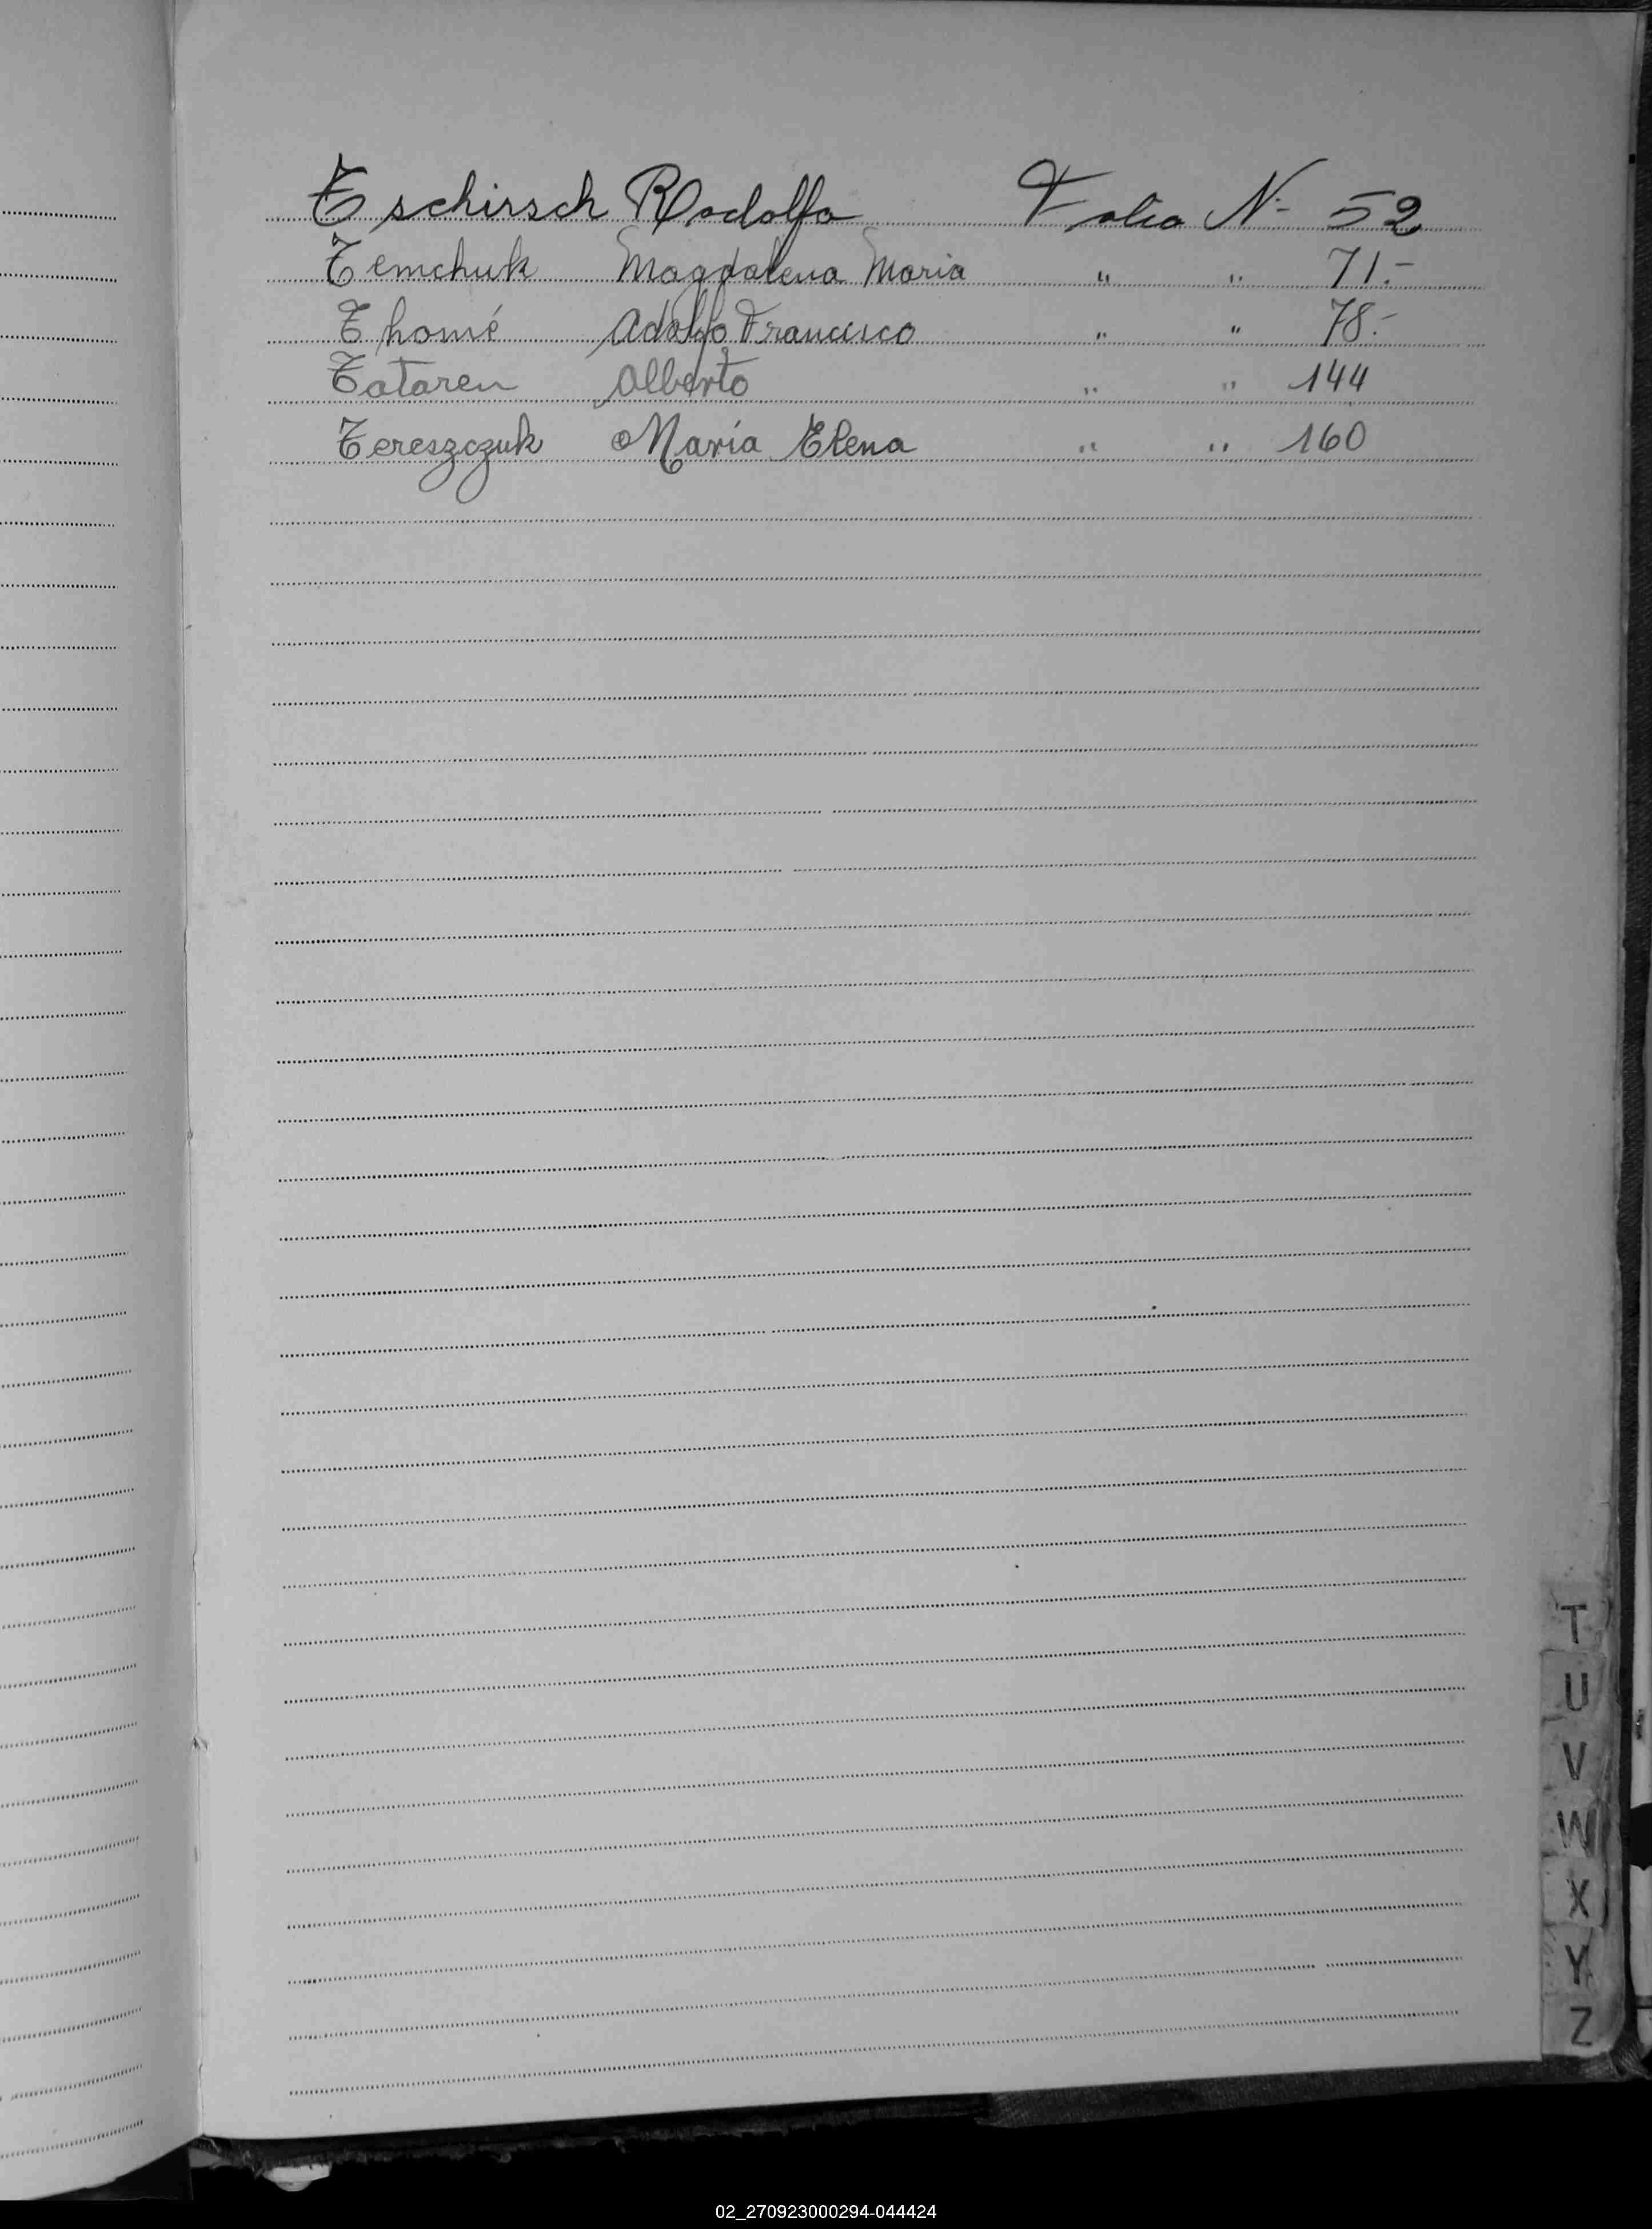 Tschirsch Rodolfo Folio N- 52
Temchuk Magdalena Maria " " 71.-
Thomé Adolfo Francisco " " 78.-
Tataren Alberto " " 144
Tereszczuk María Elena " " 160
T
U
V
W
X
Y
Z
02_270923000294-044424